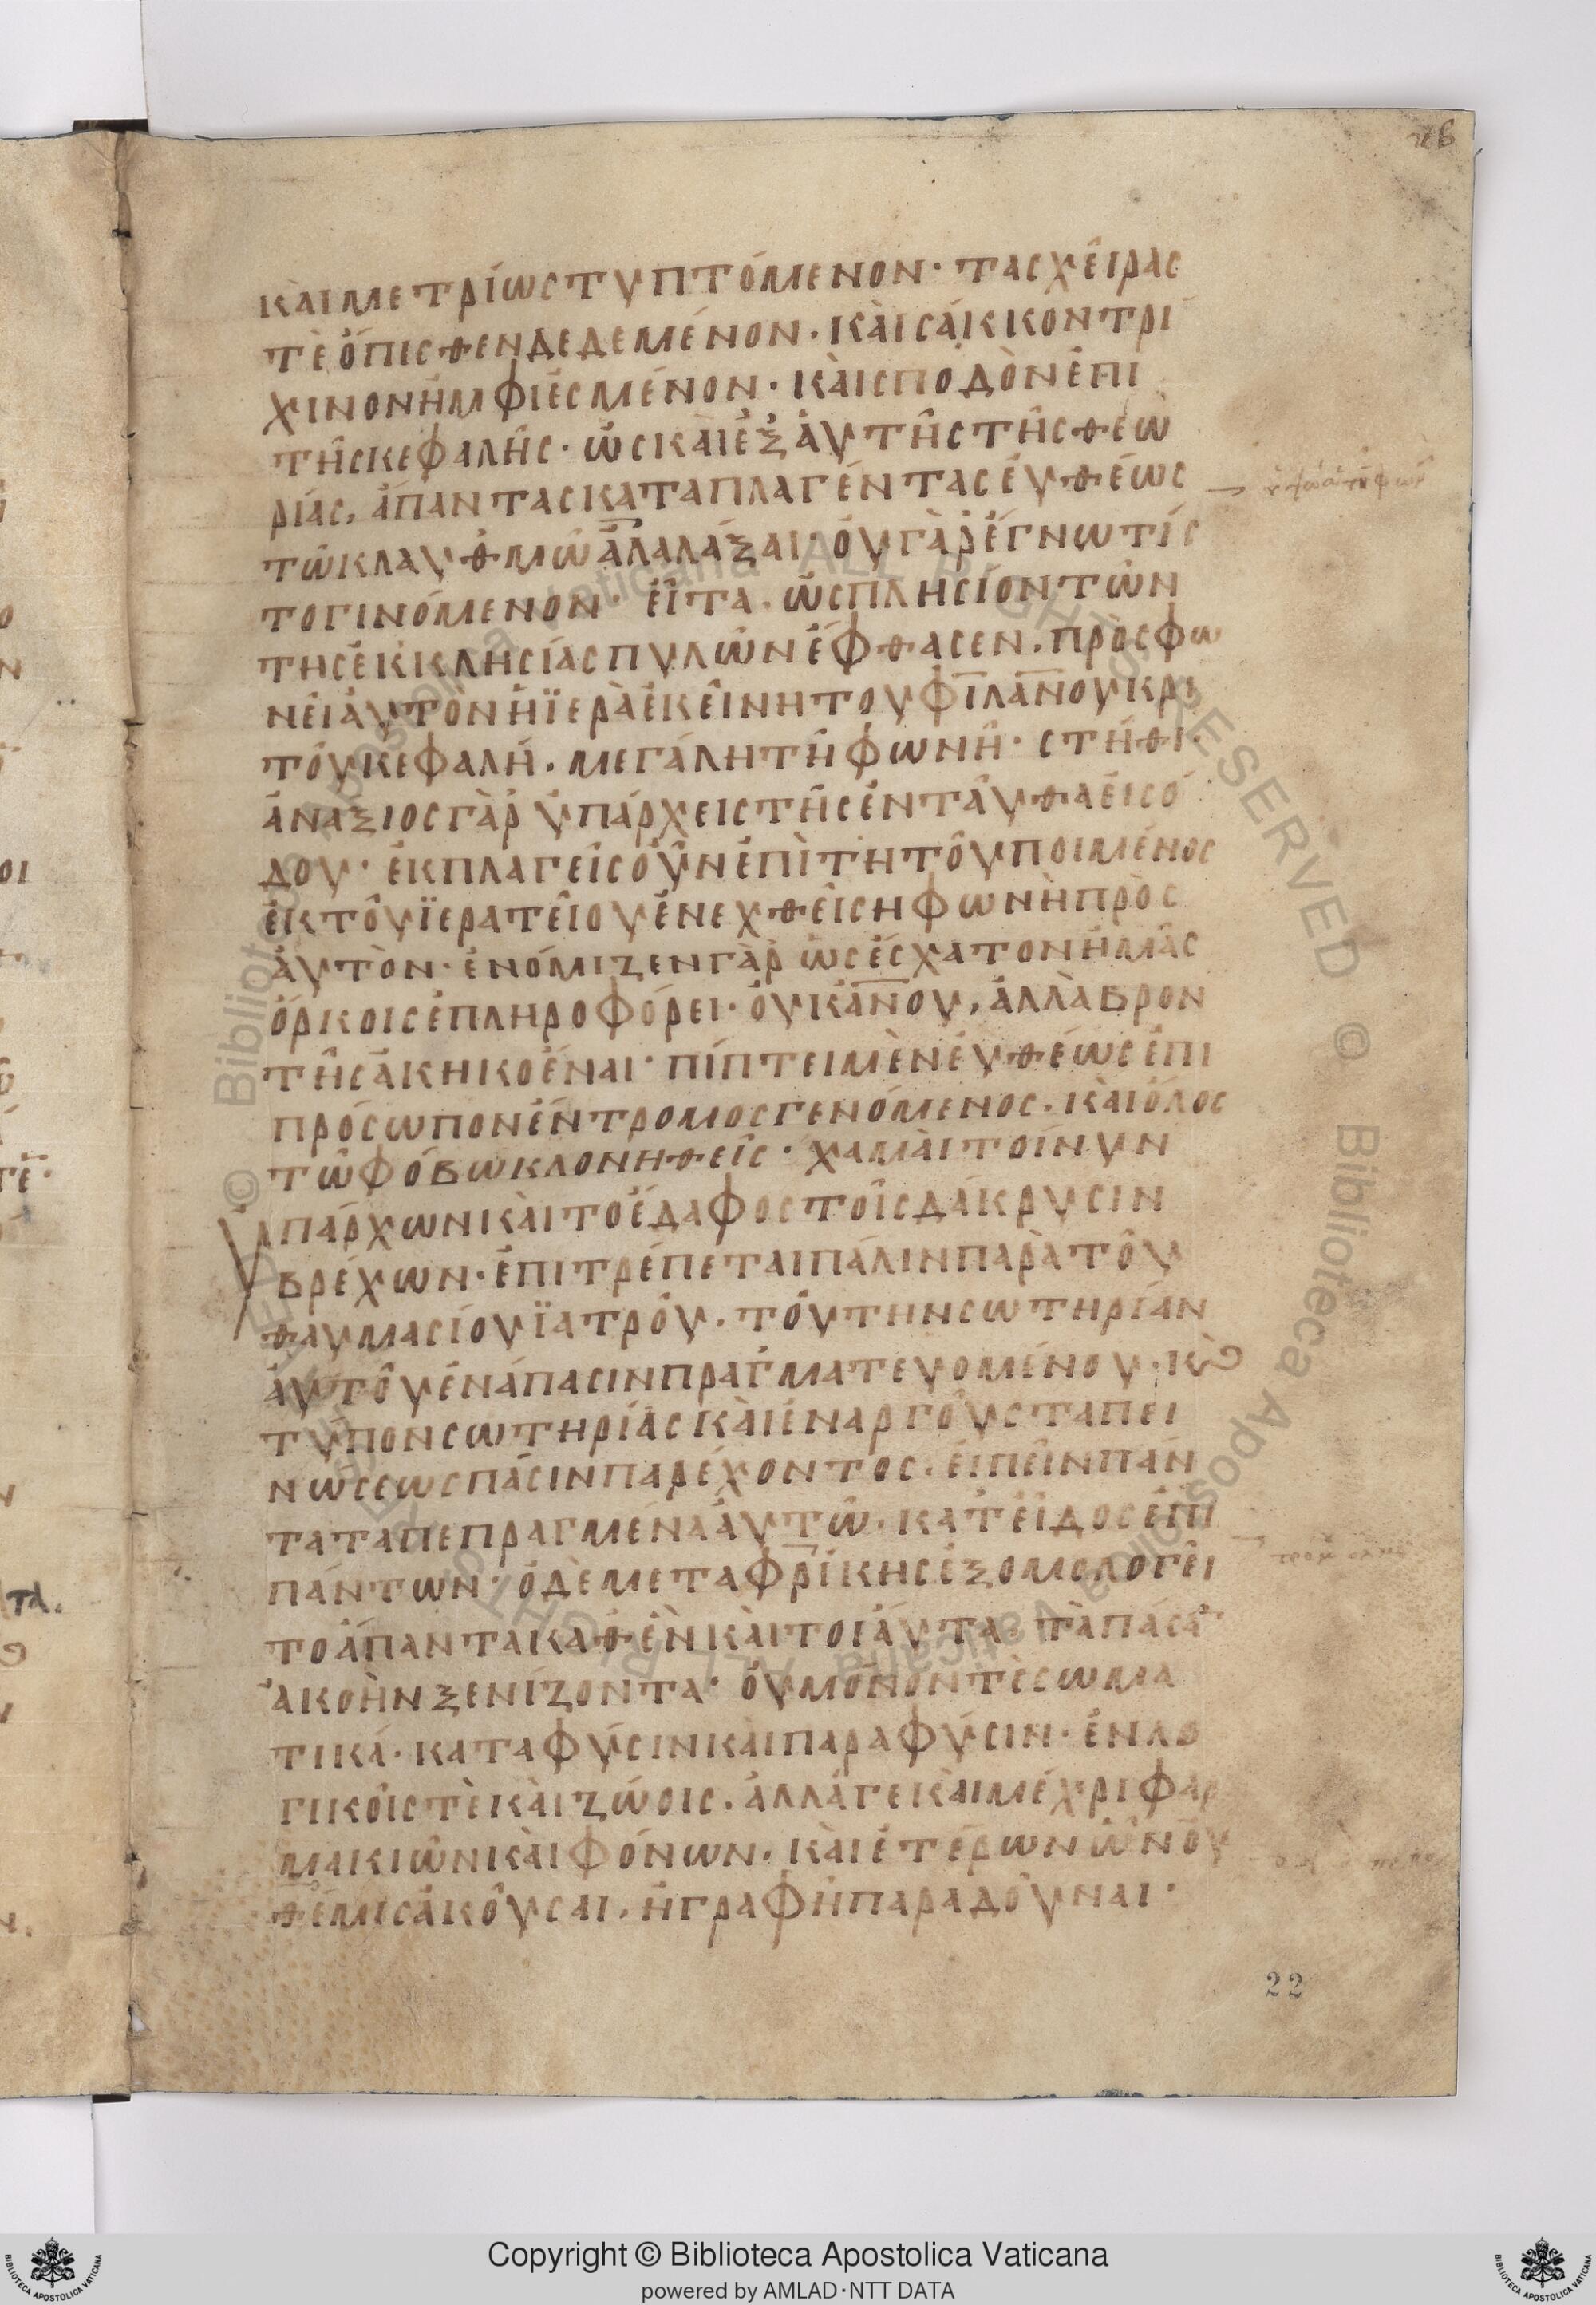 κβ
ΚΑῚΜΕΤΡΊΩΣΤΥΠΤΌΜΕΝΟΝ· ΤΑΣΧΕῖΡΑΣ
ΤΕ ὌΠΙΣΘΕΝΔΕΔΕΜΈΝΟΝ· ΚΑῚΣΆΚΚΟΝΤΡΙ
ΧΙΝΟΝἨΜΦΙΕΣΜΈΝΟΝ· ΚΑῚΣΠΟΔῸΝἘΠΙ
ΤῆΣΚΕΦΑΛῆΣ· ὩΣΚΑΙἘΞΑΥΤῆΣΤῆΣΘΕΩ
ΡΊΑΣ, ἍΠΑΝΤΑΣΚΑΤΑΠΛΑΓΈΝΤΑΣΕΥΘΈΩΣ
ΤῶΚΛΑΥΘΜῶἈΛΑΛΆΞΑΙ· ΟΥΓᾺΡἜΓΝΩΤΊΣ
ΤΟΓΙΝΌΜΕΝΟΝ· ΕἾΤΑ· ὩΣΠΛΗΣΊΟΝΤῶΝ
ΤΗΣἘΚΚΛΗΣΊΑΣΠΥΛῶΝἜΦΘΑΣΕΝ· ΠΡῸΣΦΩ
ΝΕῖΑΥΤῸΝἩΪΕΡᾺἘΚΕΊΝΗΤΟΥΦΙΛΑΝΟΥΚΡΙ
ΤΟῦΚΕΦΑΛΉ· ΜΕΓΆΛΗΤῆΦΩΝῆ· ΣΤῆΘΙ·
ἈΝΆΞΙΟΣΓᾺΡὙΠΆΡΧΕΙΣΤῆΣἘΝΤΑῦΘΑΕἸΣΌ
ΔΟΥ· ἘΚΠΛΑΓΕῖΣΟὖΝἘΠῚΤΗΤΟῦΠΟΙΜΈΝΟΣ
ἘΚΤΟῦΪΕΡΑΤΕΊΟΥἘΝΕΧΘΕῖΣΗΦΩΝῊΠΡῸΣ
ΑΥΤῸΝ· ἘΝΌΜΙΖΕΝΓᾺΡὩΣἜΣΧΑΤΟΝἩΜᾶΣ
ὍΡΚΟΙΣἘΠΛΗΡΟΦΌΡΕΙ· ΟΥΚΑΝΟΥ, ἈΛΛᾺΒΡΟΝ
ΤῆΣἈΚΗΚΟΈΝΑΙ· ΠΊΠΤΕΙΜῈΝΕΥΘΈΩΣἘΠΙ
ΠΡΌΣΩΠΟΝἜΝΤΡΟΜΟΣΓΕΝΌΜΕΝΟΣ· ΚΑῚὍΛΟΣ
ΤῶΦΌΒΩΚΛΟΝΗΘΕΊΣ· ΧΑΜΑῚΤΟΊΝΥΝ
ὙΠΆΡΧΩΝΚΑῚΤΟἜΔΑΦΟΣΤΟῖΣΔΆΚΡΥΣΙΝ
ΒΡΈΧΩΝ· ἘΠΙΤΡΈΠΕΤΑΙΠΆΛΙΝΠΑΡᾺΤΟῦ
ΘΑΥΜΑΣΊΟΥΪΑΤΡΟῦ· ΤΟῦΤΗΝΣΩΤΗΡΊΑΝ
ΑΥΤΟῦἘΝἍΠΑΣΙΝΠΡΑΓΜΑΤΕΥΟΜΈΝΟΥ· Κ(ΑΙ)
ΤΎΠΟΝΣΩΤΗΡΊΑΣΚΑῚἘΝΑΡΓΟῦΣΤΑΠΕΙ
ΝΩΣΕΩΣΠᾶΣΙΝΠΑΡΈΧΟΝΤΟΣ· ΕἸΠΕῖΝΠΆΝ
ΤΑΤΑΠΕΠΡΑΓΜΈΝΑΑΥΤῶ· ΚΑΤΕἾΔΟΣἘΠΙ
ΠΆΝΤΩΝ· ὉΔῈΜΕΤΑΦΡΊΚΗΣἘΞΟΜΟΛΟΓΕῖ
ΤΟἍΠΑΝΤΑΚΑΘῈΝΚΑῚΤΟΙΑῦΤΑ· ΤᾺΠΆΣΑΝ
ἈΚΟῊΝΞΕΝΊΖΟΝΤΑ· ΟΥΜΌΝΟΝΤῈΣΩΜΑ
ΤΙΚΆ· ΚΑΤΑΦΎΣΙΝΚΑῚΠΑΡΑΦΎΣΙΝ· ἘΝΛΟ
ΓΙΚΟῖΣΤῈΚΑῚΖΏΟΙΣ· ἈΛΛΆΓΕΚΑῚΜΈΧΡΙΦΑΡ
ΜΑΚΙῶΝΚΑῚΦΌΝΩΝ· ΚΑῚἙΤΈΡΩΝὩΝΟΥ
ΘΈΜΙΣἈΚΟῦΣΑΙ· ἨΓΡΑΦῆΠΑΡΑΔΟῦΝΑΙ·
22
© Biblioteca Apostolica Vaticana ALL RIGHTS RESERVED
Copyright © Biblioteca Apostolica Vaticana
powered by AMLAD·NTT DATA